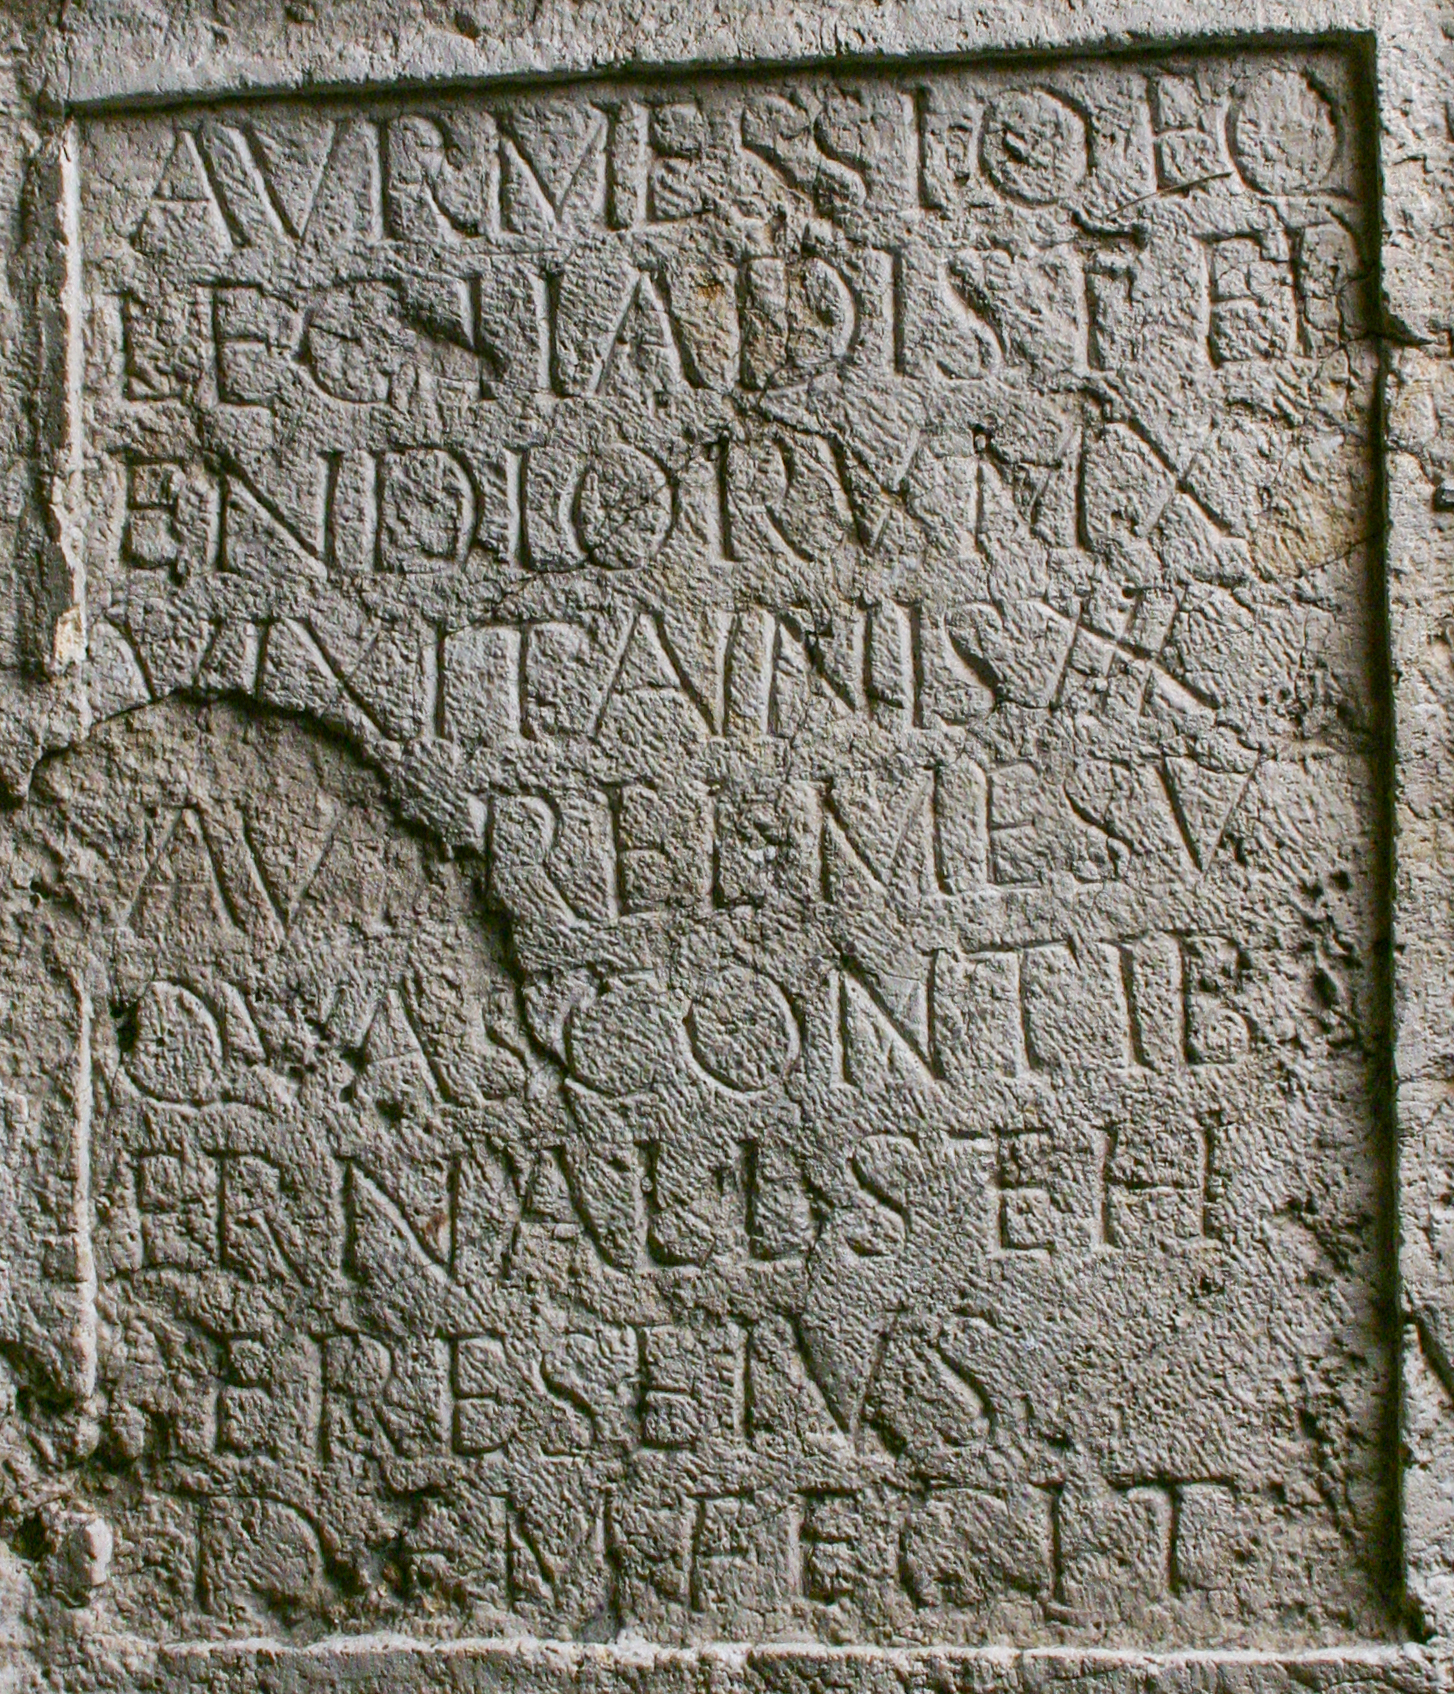 AVR MESSIO EQ
LEG II ADI STIP
ENDIORVM X
VIXIT ANNIS XXX
AVREL MESV
Q ALCONTIB
ERNALIS ET H
ERES EIVS
D M FEC IT